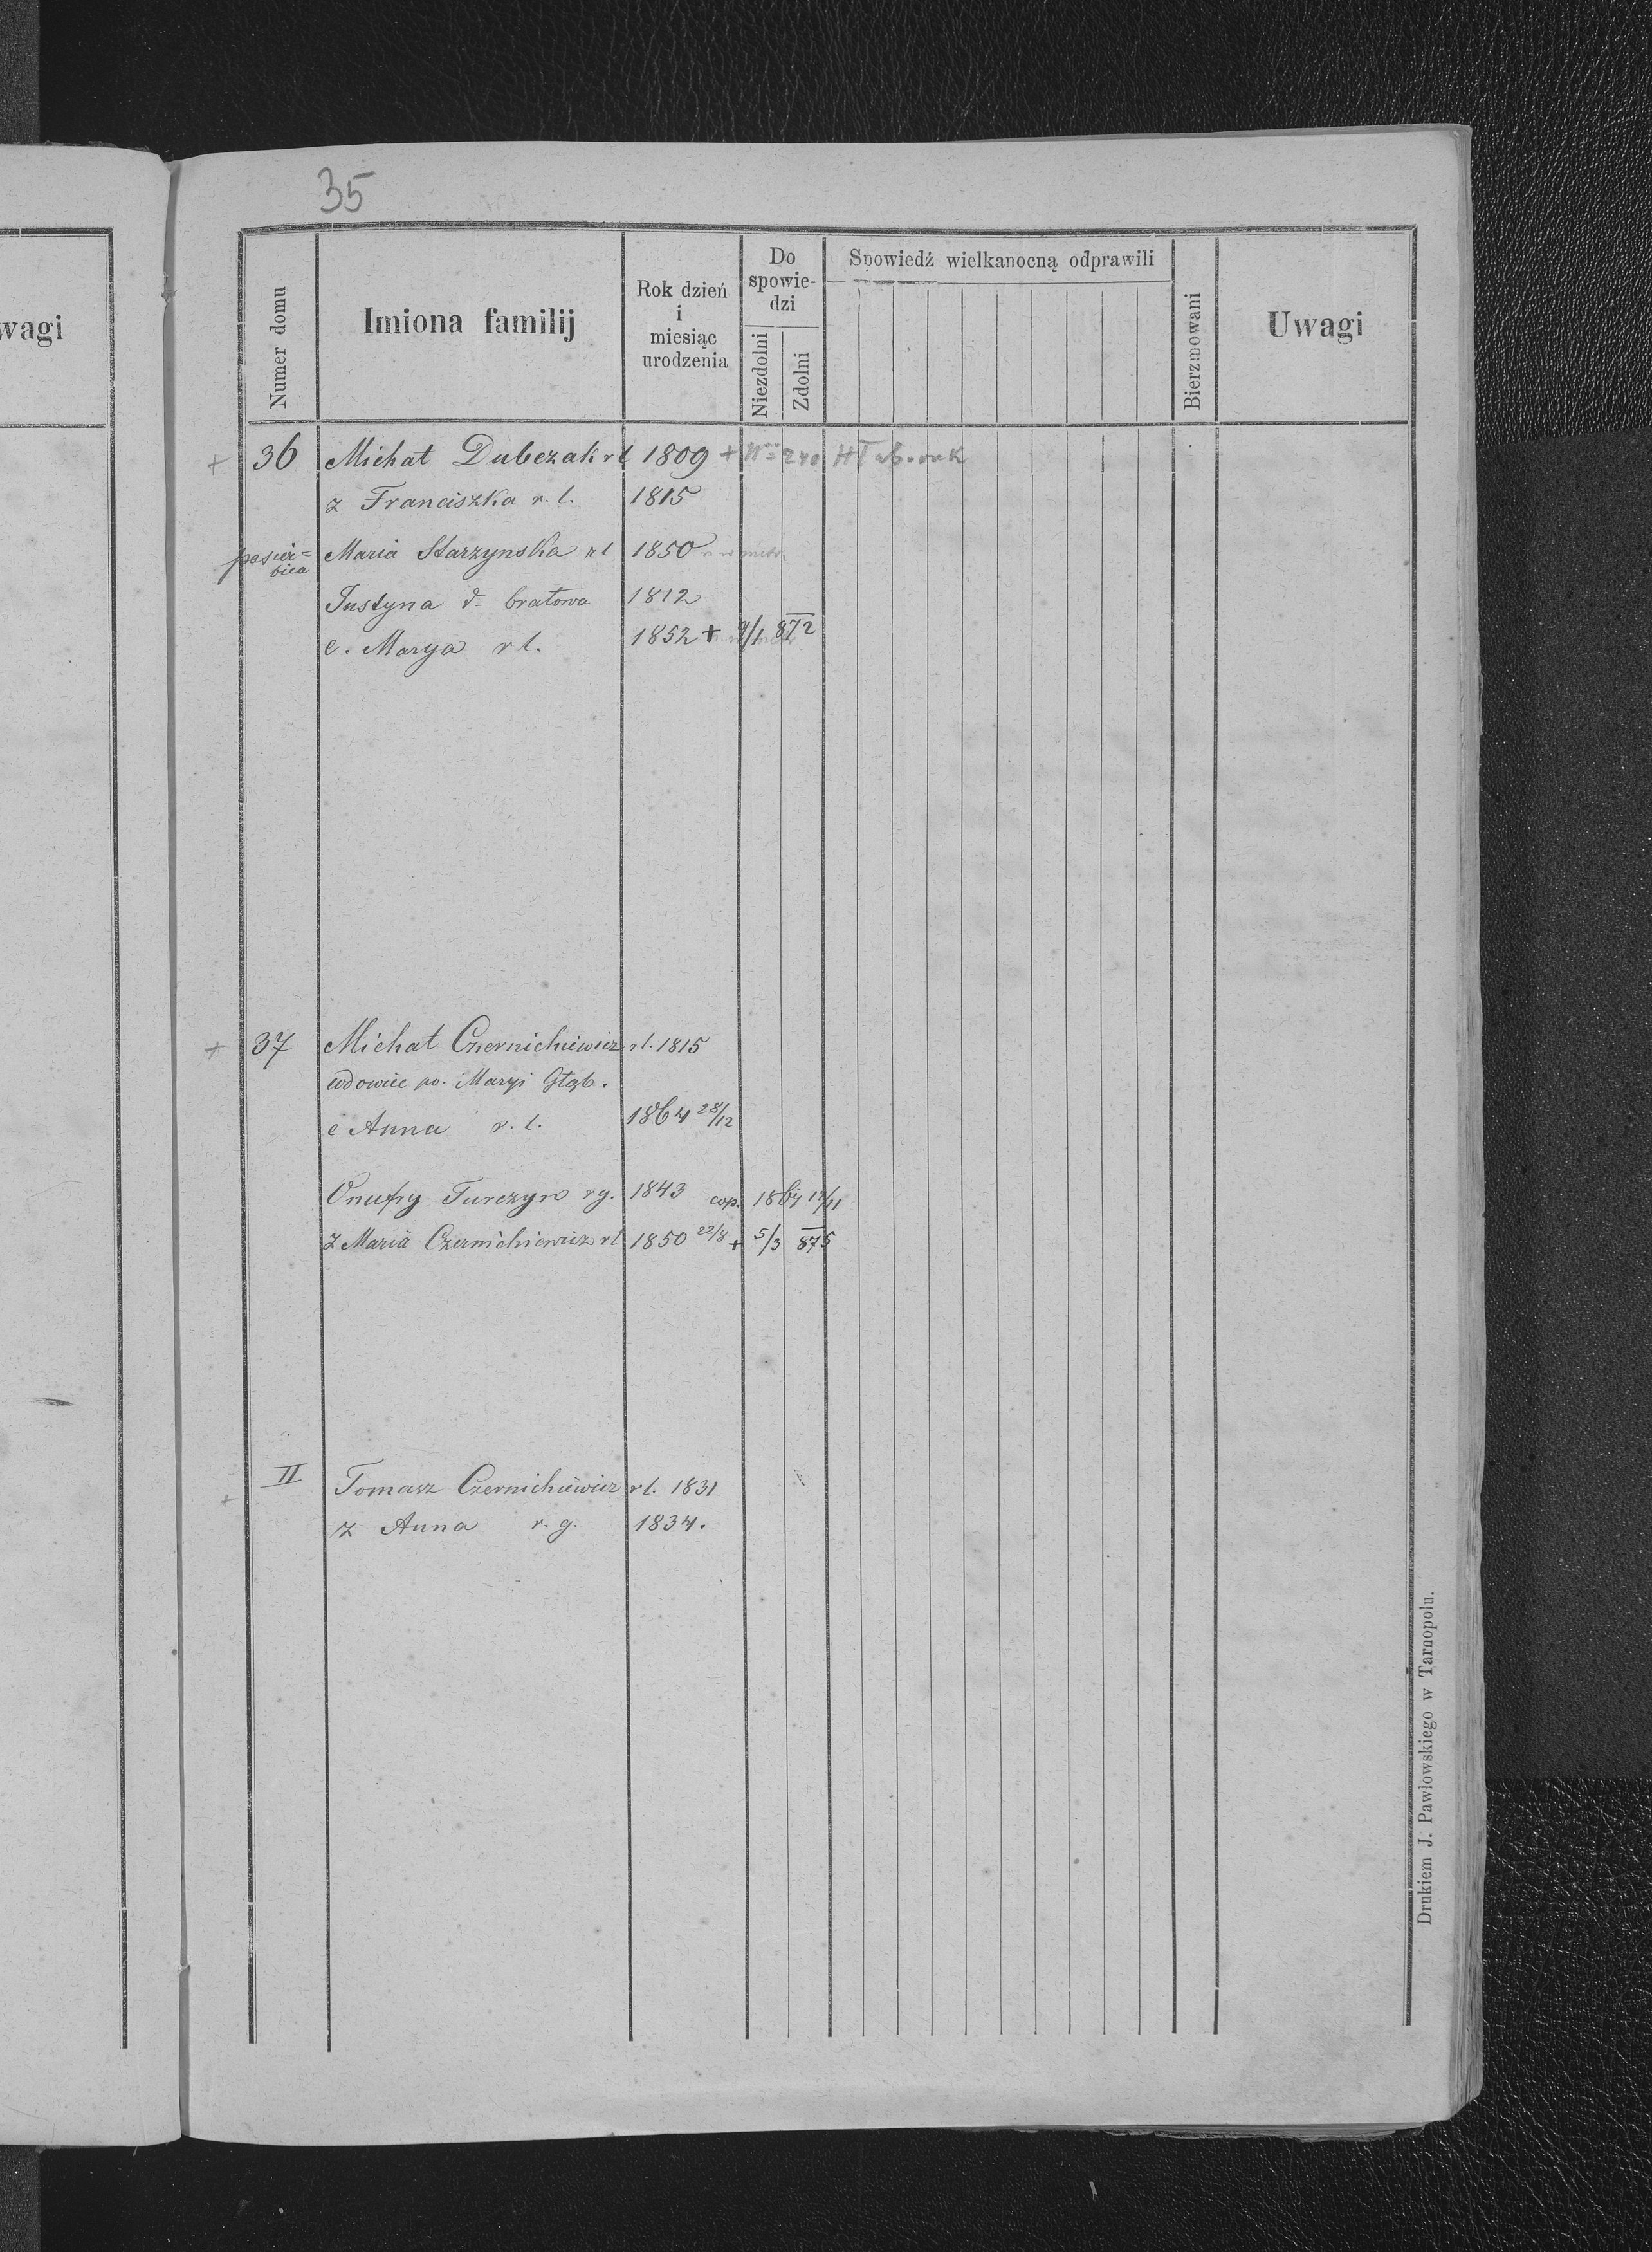 35
wagi
Numer domu
Imiona familij
Rok dzień
i
miesiąc
urodzenia
Do
spowie-
dzi
Niezdolni
Zdolni
Spowiedź wielkanocną odprawili
Bierzmowani
Uwagi
+ 36 Michał Dubczak rl 1809 + N 240
z Franciszka r. l. 1815
pasier=
bica
Maria Starzynska rl 1850
Justyna d- bratowa 1812
c. Marya r l. 1852 + 9/1 872
+ 37 Michał Czernichiewicz rl. 1815
wdowiec po. Maryi Głąb.
c Anna r. l. 1864 28/12
Onufry Turczyn rg. 1843 cop. 1867 12/11
z Maria Czernichiewicz rl 1850 22/8 + 5/3 875
+ II Tomasz Czernichiewicz rl. 1831
z Anna r. g. 1834.
Drukiem J. Pawłowskiego w Tarnopolu.